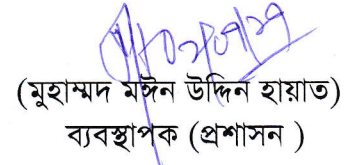 (মুহাম্মদ মঈন উদ্দিন হায়াত)
ব্যবস্থাপক (প্রশাসন )